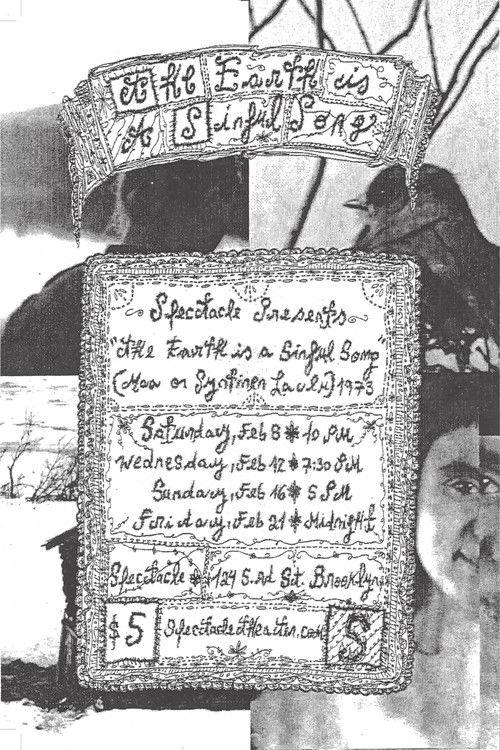 The Earth is
A Sinful Song
Spectacle Presents
"The Earth is a Sinful Song"
(Maa on Syntinen Laulu) 1973
Saturday, Feb 8 * 10 PM
Wednesday, Feb 12 * 7:30 PM
Sunday, Feb 16 * 5 PM
Friday, Feb 21 * Midnight
Spectacle * 124 S. 3rd St. Brooklyn
$5 spectacletheater.com S